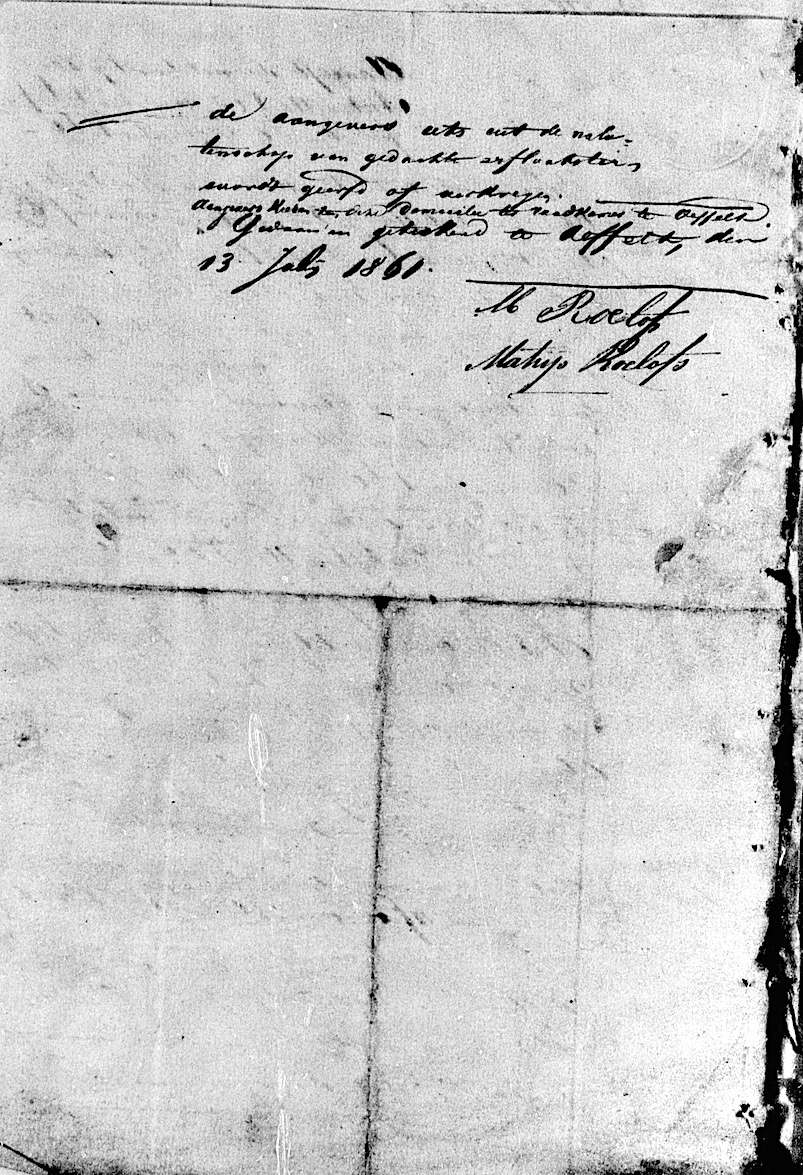 de aangevers iets uit de nala-
tenschap van gedachte erflaatster,
wordt geerfd of verkregen.
Aangevers kiezen ten deze domicilie ten raadhuize te Oeffelt.
Gedaan en geteekend te Oeffelt, den
13 July 1861.
M Roelofs
Mathijs Roelofs